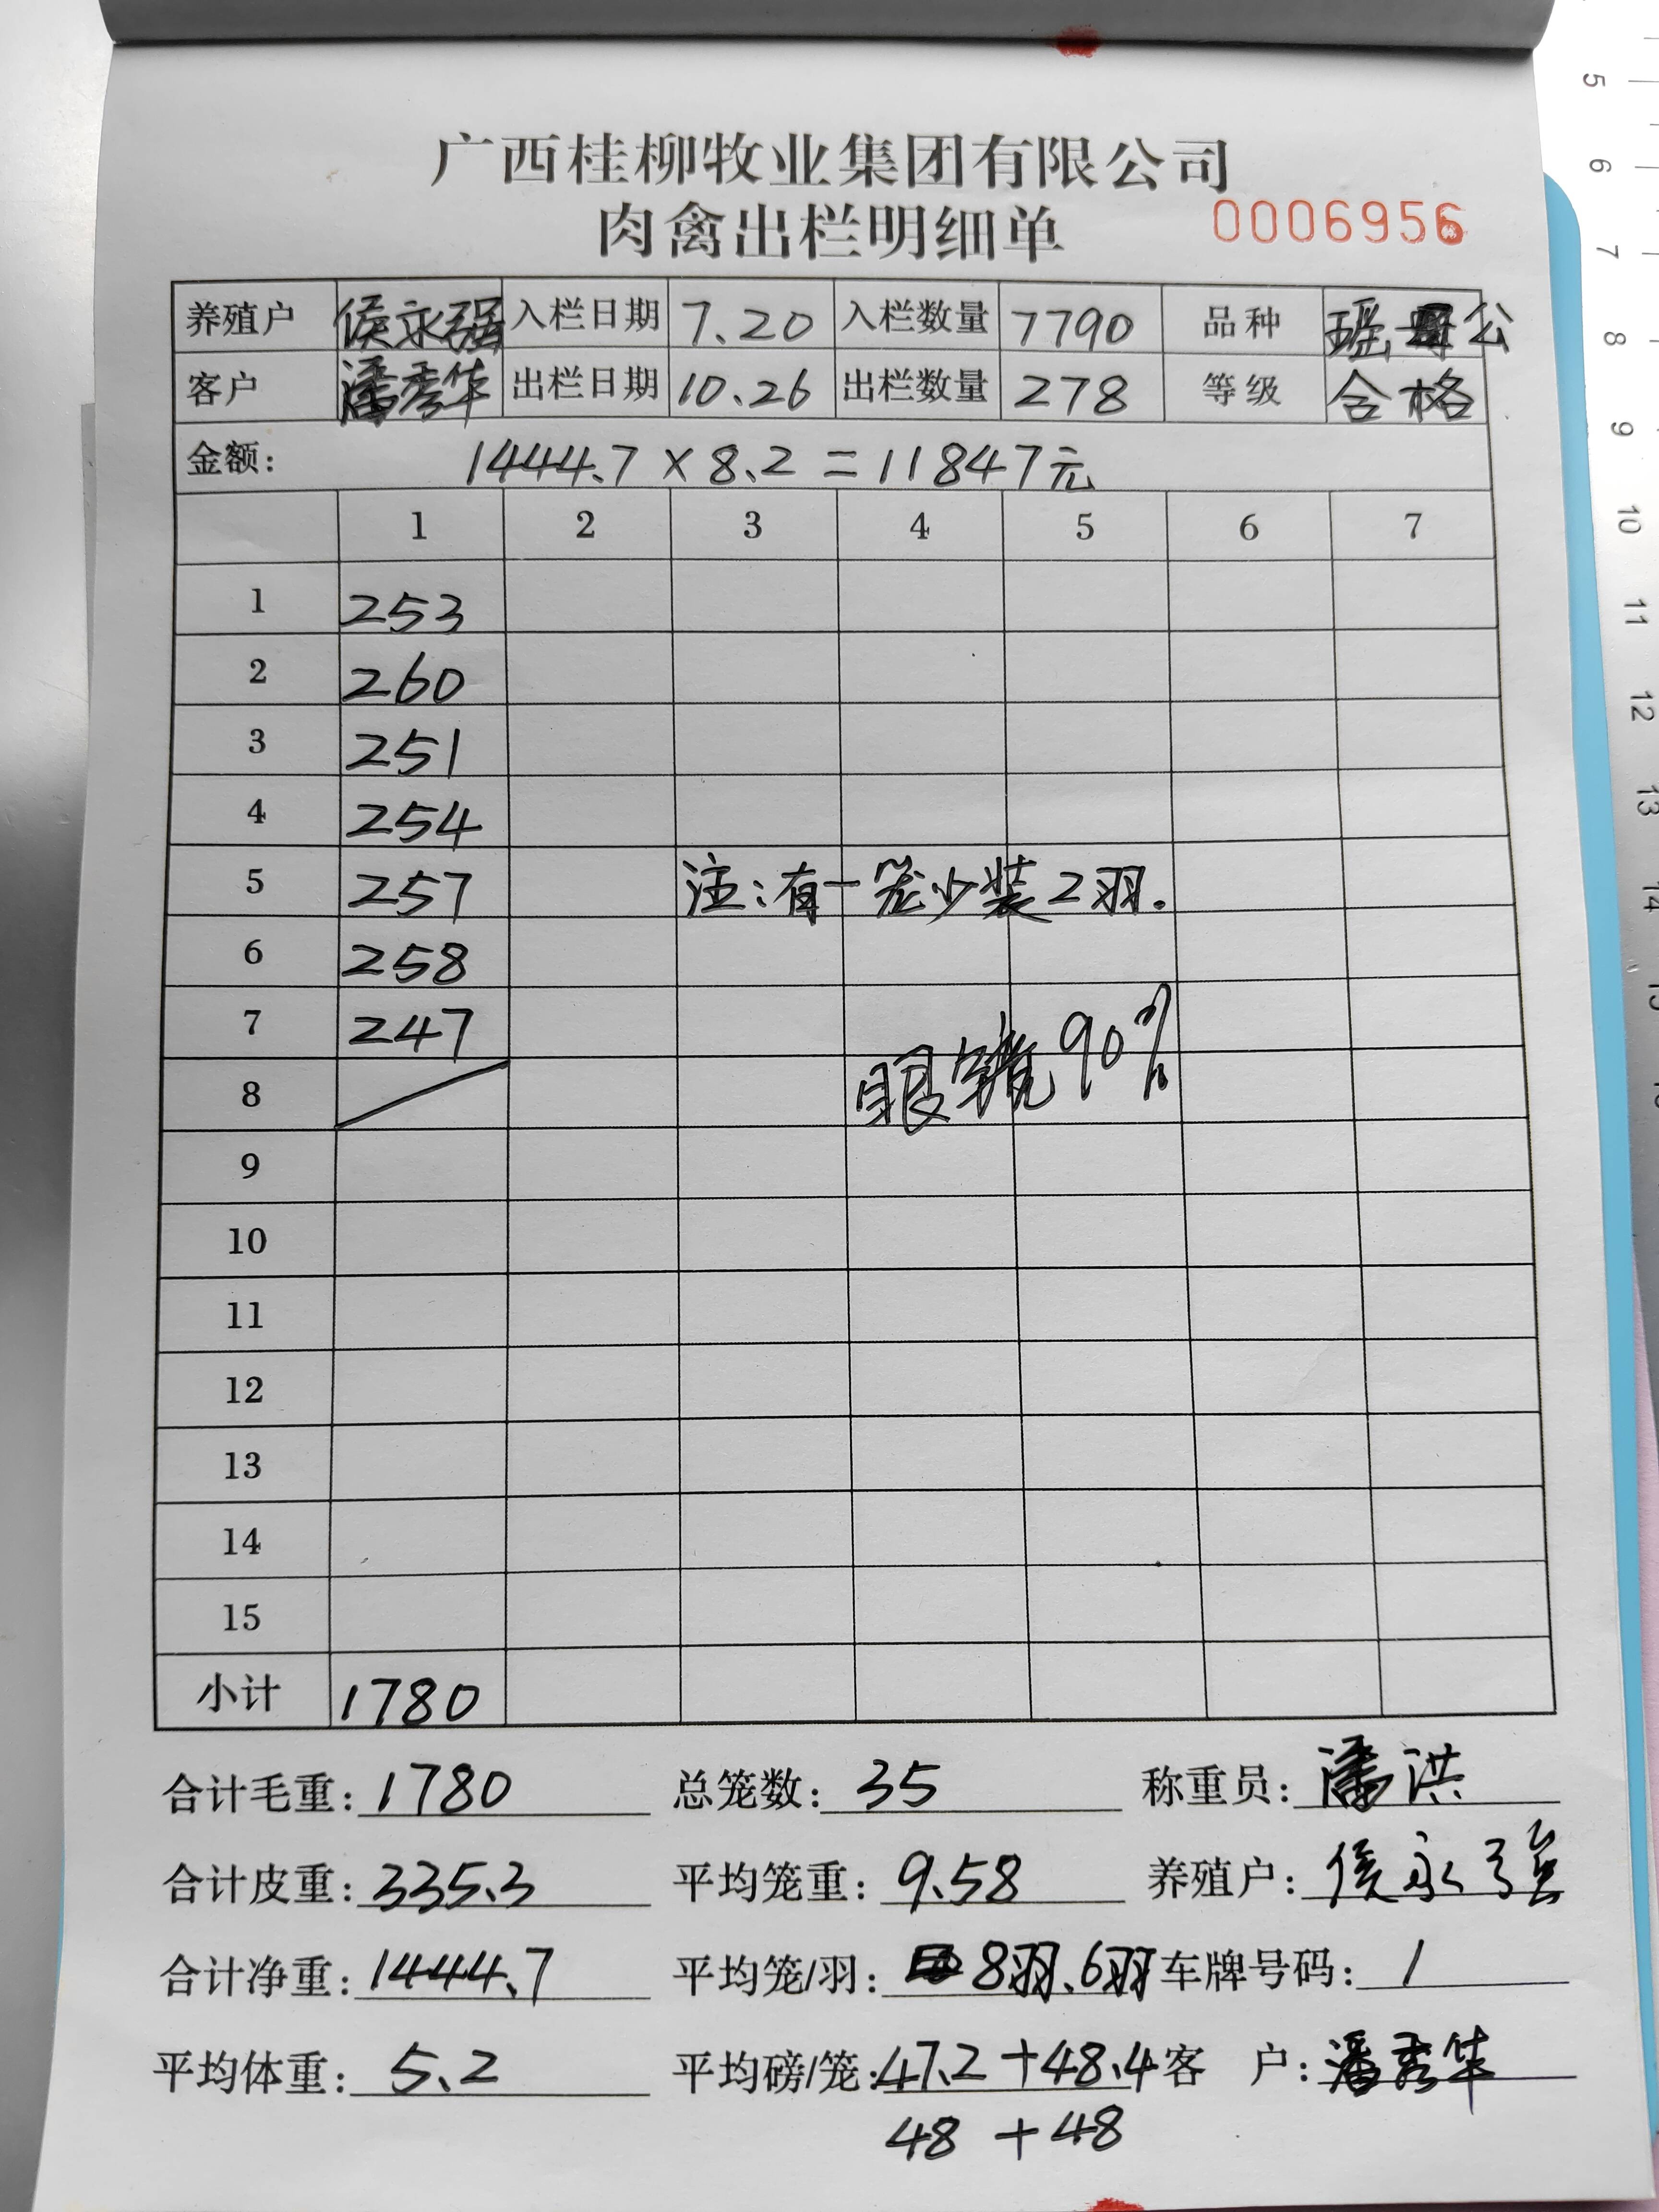 广西桂柳牧业集团有限公司
肉禽出栏明细单 0006956
养殖户 侯永强 入栏日期 7.20 入栏数量 7790 品种 瑶 公
客户 潘秀华 出栏日期 10.26 出栏数量 278 等级 合格
金额: 1444.7×8.2=11847元
1 2 3 4 5 6 7
1 253
2 260
3 251
4 254
5 257 注:有一笼少装2羽.
6 258
7 247
8 眼镜90%
9
10
11
12
13
14
15
小计 1780
合计毛重: 1780 总笼数: 35 称重员: 潘洪
合计皮重: 335.3 平均笼重: 9.58 养殖户: 侯永强
合计净重: 1444.7 平均笼/羽: 8羽.6羽 车牌号码: /
平均体重: 5.2 平均磅/笼: 47.2+48.4 客 户: 潘秀华
48+48
5
6
7
8
9
10
11
12
13
14